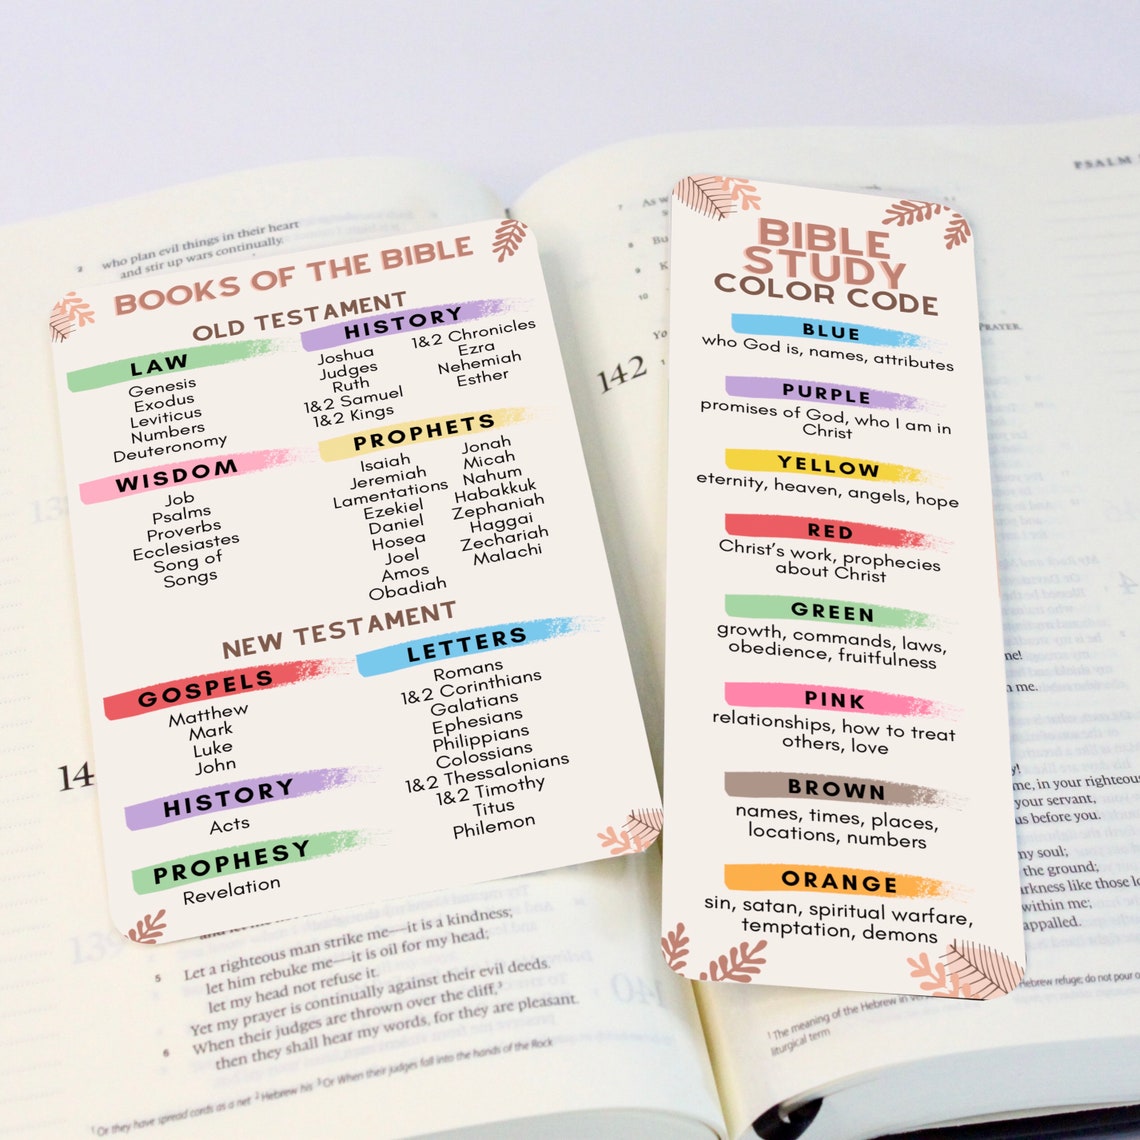 BOOKS OF THE BIBLE
OLD TESTAMENT
LAW
Genesis
Exodus
Leviticus
Numbers
Deuteronomy
HISTORY
Joshua
Judges
Ruth
1&2 Samuel
1&2 Kings
1&2 Chronicles
Ezra
Nehemiah
Esther
WISDOM
Job
Psalms
Proverbs
Ecclesiastes
Song of
Songs
PROPHETS
Isaiah
Jeremiah
Lamentations
Ezekiel
Daniel
Hosea
Joel
Amos
Obadiah
Jonah
Micah
Nahum
Habakkuk
Zephaniah
Haggai
Zechariah
Malachi
NEW TESTAMENT
GOSPELS
Matthew
Mark
Luke
John
HISTORY
Acts
PROPHESY
Revelation
LETTERS
Romans
1&2 Corinthians
Galatians
Ephesians
Philippians
Colossians
1&2 Thessalonians
1&2 Timothy
Titus
Philemon
BIBLE
STUDY
COLOR CODE
BLUE
who God is, names, attributes
PURPLE
promises of God, who I am in
Christ
YELLOW
eternity, heaven, angels, hope
RED
Christ's work, prophecies
about Christ
GREEN
growth, commands, laws,
obedience, fruitfulness
PINK
relationships, how to treat
others, love
BROWN
names, times, places,
locations, numbers
ORANGE
sin, satan, spiritual warfare,
temptation, demons
2 who plan evil things in their heart
and stir up wars continually.
14
139
and let
5 Let a righteous man strike me—it is a kindness;
let him rebuke me—it is oil for my head;
let my head not refuse it.
Yet my prayer is continually against their evil deeds.
6 When their judges are thrown over the cliff,³
then they shall hear my words, for they are pleasant.
¹ Or they have spread cords as a net ² Hebrew his ³ Or When their judges fall into the hands of the Rock
PSALM
7 As w
8 Bu
9 K
10
PRAYER.
142 1
me!
n me.
y!
me, in your righteous
your servant,
us before you.
my soul;
the ground;
arkness like those lo
within me;
appalled.
Hebrew refuge; do not pour
¹ The meaning of the Hebrew
liturgical term